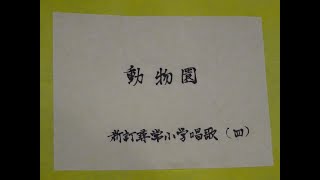 動物園
新訂尋常小学唱歌（四）